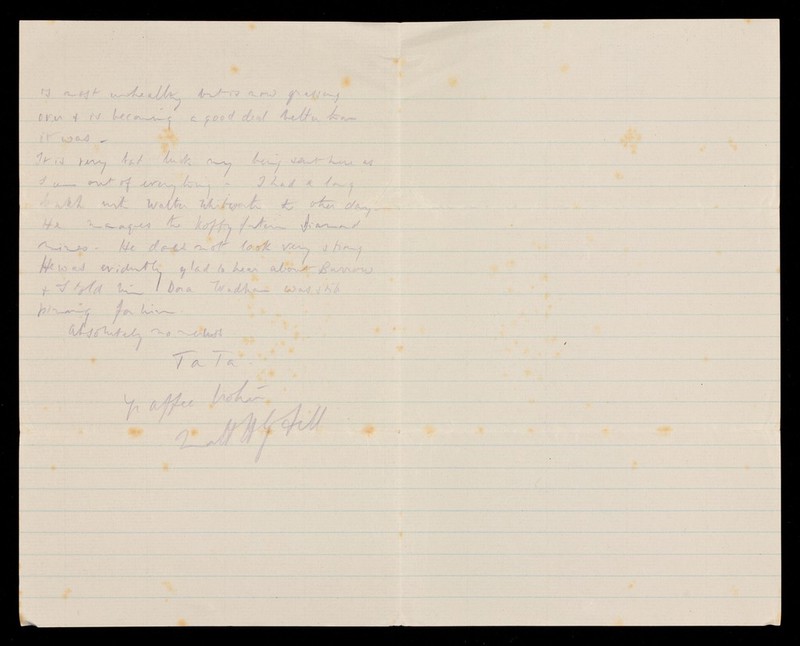 is most unhealthy but is now grassing
over & is becoming a good deal better than
it was -
It is very bad luck my being sent here as
I am out of everything - I had a long
with Walter Whitworth the other day
He manages the Koffyfontein Diamond
mines - He does not look very strong
He was evidently glad to hear about Barrow
& I told him Dora Wadham was still
pining for him
Absolutely no news
Ta Ta
Yr affec